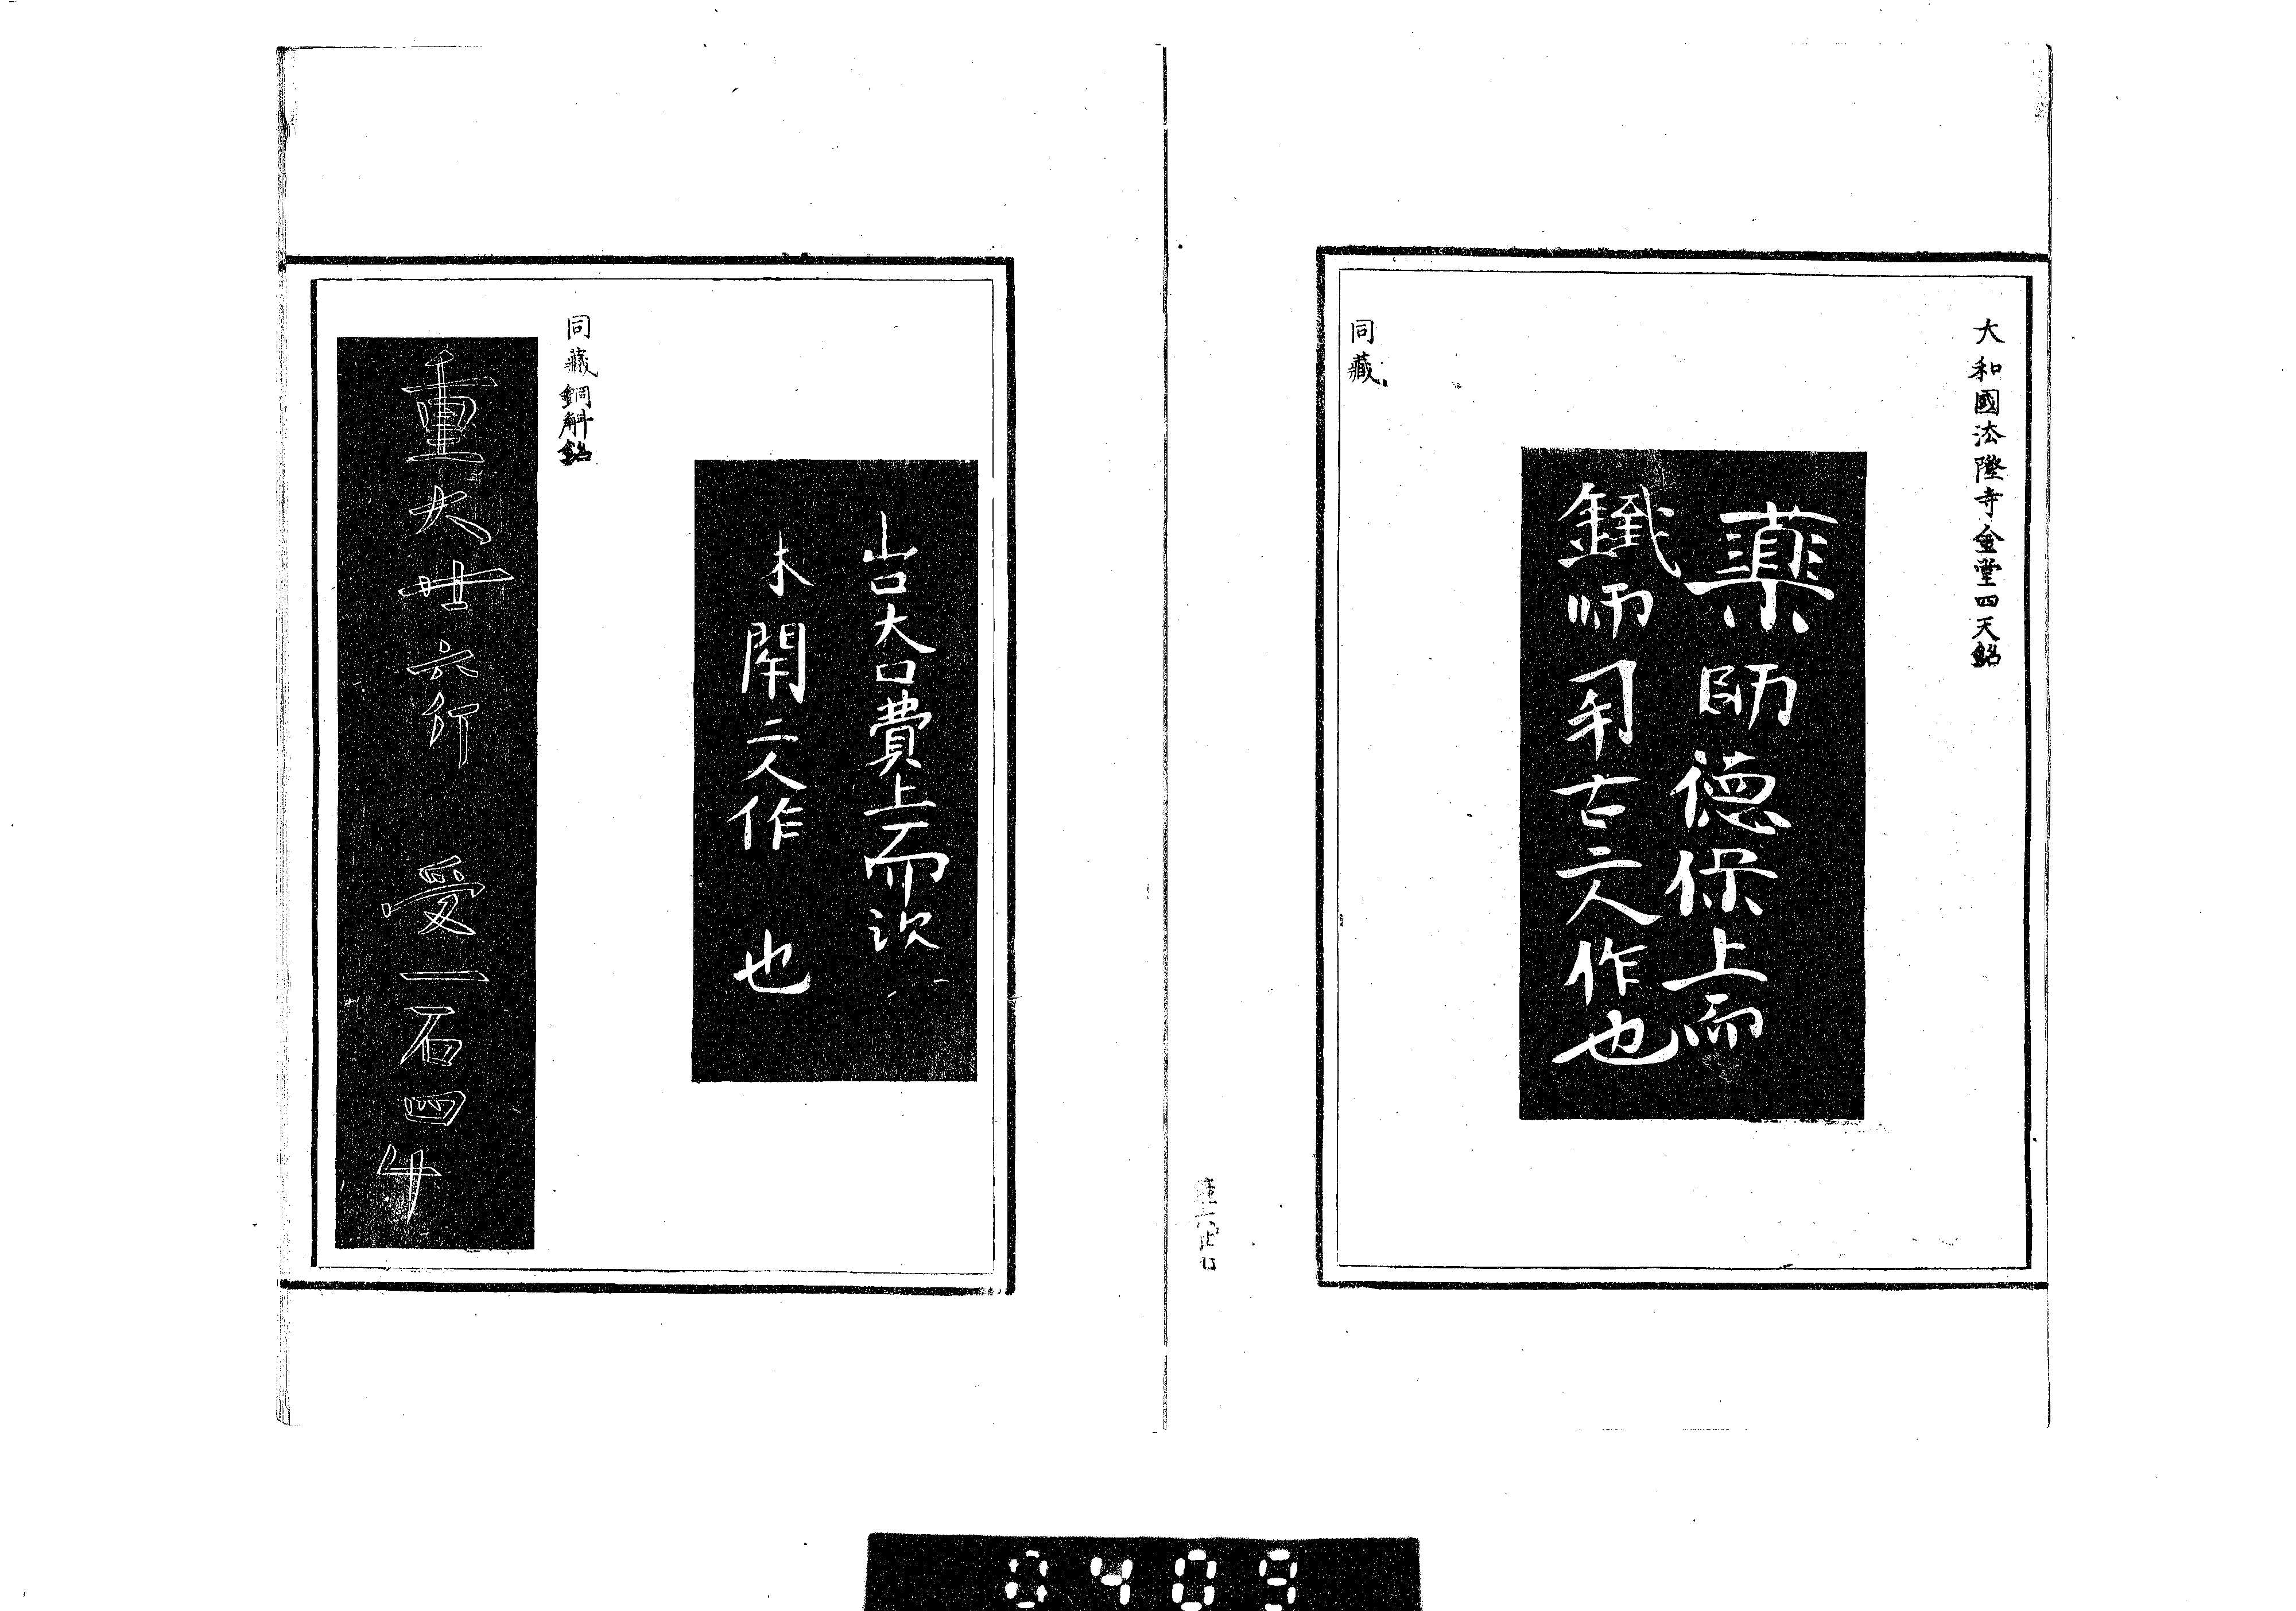 大和國法隆寺金堂四天銘
藥師德保上而
鐵師𤘩古二人作也
同藏
山口大口費上而次
木閇二人作也
同藏銅斛銘
重大廿六斤 受一石四斗
0409